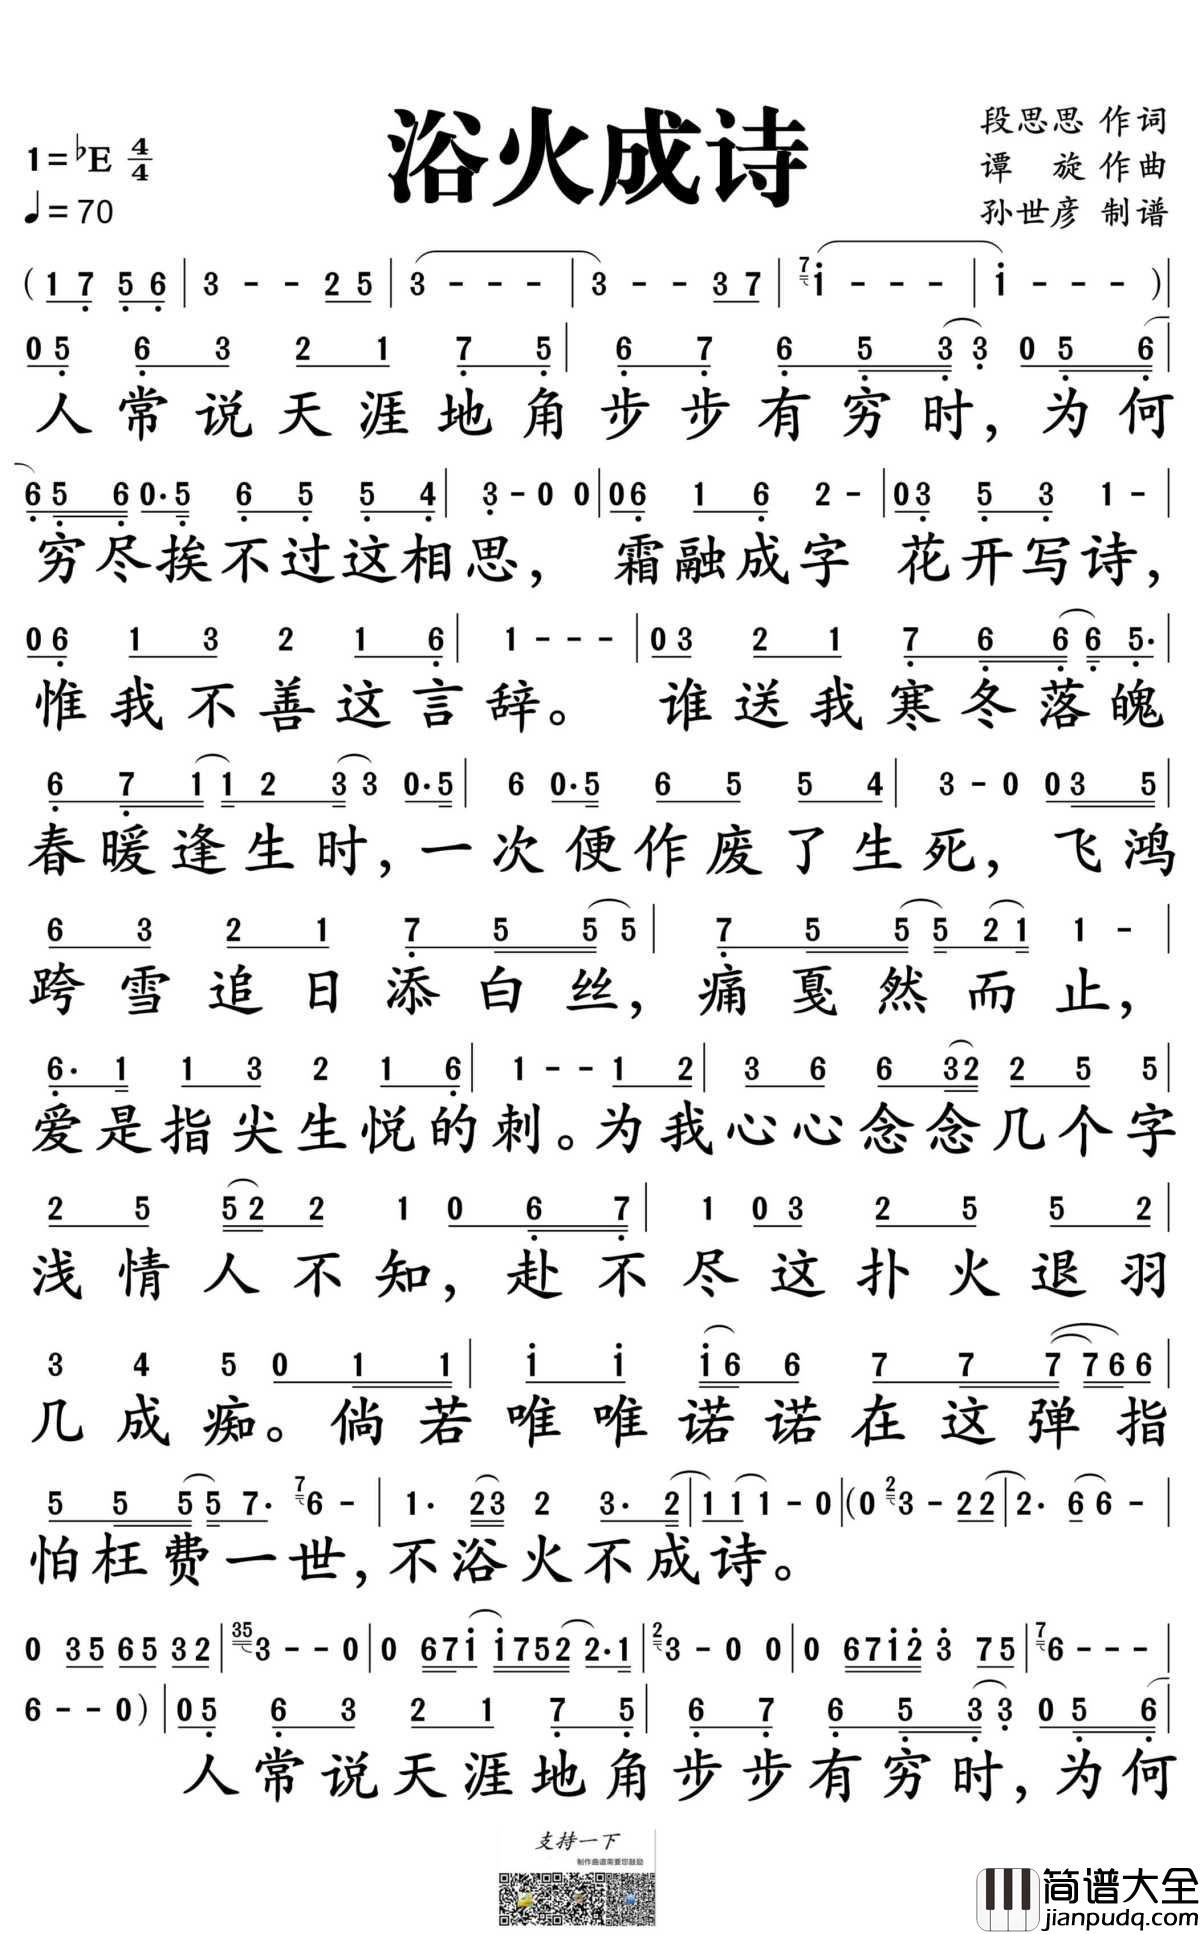 浴火成诗
1=♭E 4/4
♩=70
段思思 作词
谭 旋 作曲
孙世彦 制谱
( 1 7 5 6 | 3 - - 2 5 | 3 - - - | 3 - - 3 7 | 7 i - - - | i - - - ) |
0 5 6 3 2 1 7 5 | 6 7 6 5 3 3 0 5 6 |
人常说天涯地角步步有穷时,为何
6 5 6 0· 5 6 5 5 4 | 3 - 0 0 | 0 6 1 6 2 - | 0 3 5 3 1 - |
穷尽挨不过这相思, 霜融成字 花开写诗,
0 6 1 3 2 1 6 | 1 - - - | 0 3 2 1 7 6 6 6 5· |
惟我不善这言辞。 谁送我寒冬落魄
6 7 1 1 2 3 3 0· 5 | 6 0· 5 6 5 5 4 | 3 - 0 0 3 5 |
春暖逢生时,一次便作废了生死,飞鸿
6 3 2 1 7 5 5 5 | 7 5 5 5 2 1 1 - |
跨雪追日添白丝,痛戛然而止,
6· 1 1 3 2 1 6 | 1 - - 1 2 | 3 6 6 3 2 2 5 5 |
爱是指尖生悦的刺。为我心心念念几个字
2 5 5 2 2 1 0 6 7 | 1 0 3 2 5 5 2 |
浅情人不知,赴不尽这扑火退羽
3 4 5 0 1 1 | i i i 6 6 7 7 7 7 6 6 |
几成痴。倘若唯唯诺诺在这弹指
5 5 5 5 7· 7 6 - | 1· 2 3 2 3· 2 | 1 1 1 - 0 | ( 0 2 3 - 2 2 | 2· 6 6 - |
怕枉费一世,不浴火不成诗。
0 3 5 6 5 3 2 | 35 3 - - 0 | 0 6 7 i i 7 5 2 2· 1 | 2 3 - 0 0 | 0 6 7 i 2 3 7 5 | 7 6 - - - |
6 - - 0 ) | 0 5 6 3 2 1 7 5 | 6 7 6 5 3 3 0 5 6 |
人常说天涯地角步步有穷时,为何
支持一下
制作曲谱需要您鼓励
简谱大全
jianpudq.com